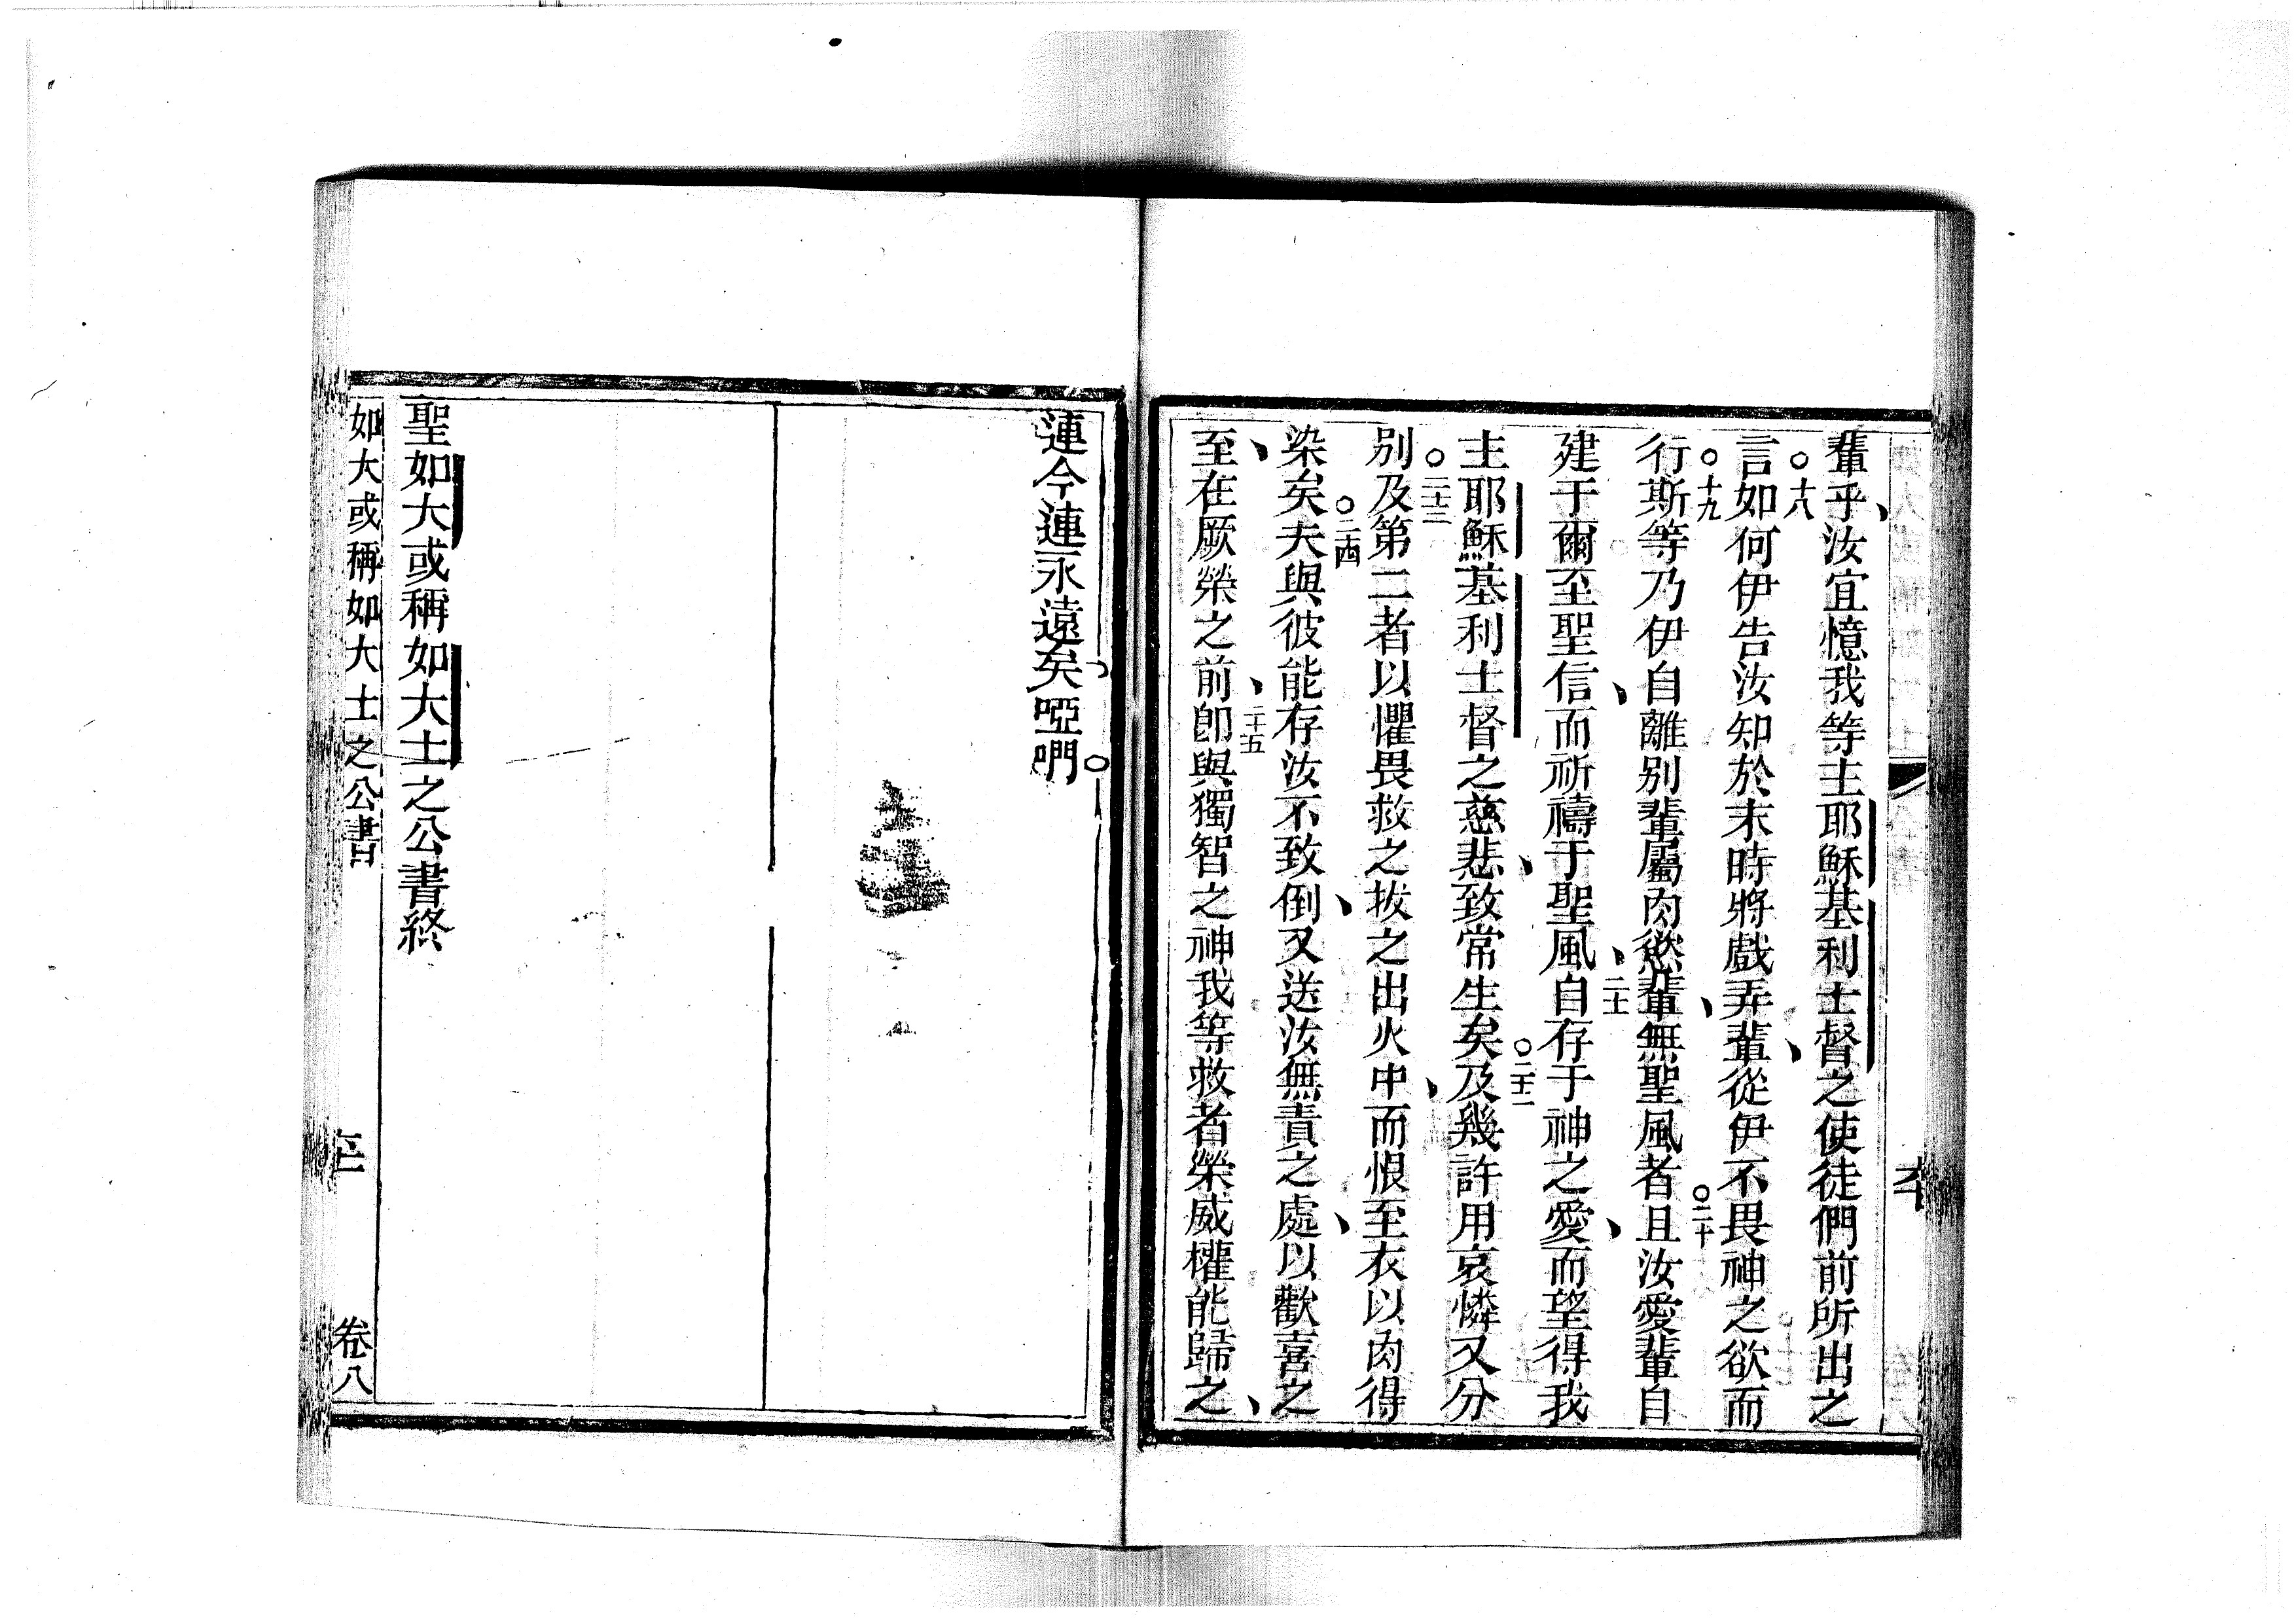 輩乎汝宜憶我等主耶穌基利士督之使徒們前所出之
○十八
言如何伊告汝知於末時將戲弄輩從伊不畏神之欲而
○十九
行斯等乃伊自離別輩屬肉慾輩無聖風者且汝愛輩自
○二十
建于爾至聖信而祈禱于聖風自存于神之愛而望得我
二十一
主耶穌基利士督之慈悲致常生矣及幾許用哀憐又分
○二十二
別及第二者以懼畏救之拔之出火中而恨至衣以肉得
○二十三
染矣夫與彼能存汝不致倒又送汝無責之處以歡喜之
○二十四
至在厥榮之前即與獨智之神我等救者榮威權能歸之
二十五
連今連永遠矣啞嗎
聖如大或稱如大士之公書終
如大或稱如大士之公書
卷八